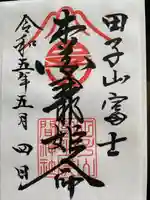 田子山富士
木花開耶姫命
令和五年五月四日